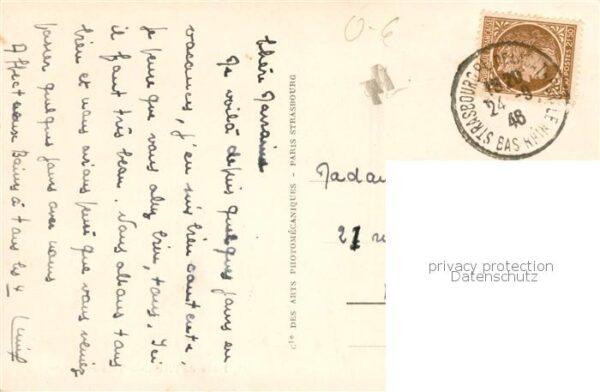 Chère Marraine
Me voilà depuis quelques jours en
vacances, j'en suis bien contente.
Je pense que vous allez bien, tous. Ici
il fait très beau. Nous allons tous
bien et nous avions pensé que vous veniez
passer quelques jours avec nous
Affectueux Baisers à tous les 4
Cie DES ARTS PHOTOMÉCANIQUES - PARIS-STRASBOURG
0-6
POSTES 2F50
STRASBOURG
BAS RHIN
24
48
Mada
21 r
privacy protection
Datenschutz